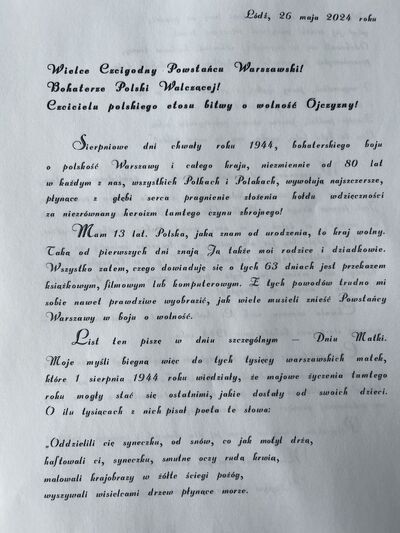 Łódź, 26 maja 2024 roku
Wielce Czcigodny Powstańcu Warszawski!
Bohaterze Polski Walczącej!
Czcicielu polskiego etosu bitwy o wolność Ojczyzny!
Sierpniowe dni chwały roku 1944, bohaterskiego boju
o polskość Warszawy i całego kraju, niezmiennie od 80 lat
w każdym z nas, wszystkich Polkach i Polakach, wywołują najszczersze,
płynące z głębi serca pragnienie złożenia hołdu wdzięczności
za niezrównany heroizm tamtego czynu zbrojnego!
Mam 13 lat. Polska, jaką znam od urodzenia, to kraj wolny.
Taką od pierwszych dni znają Ją także moi rodzice i dziadkowie.
Wszystko zatem, czego dowiaduję się o tych 63 dniach jest przekazem
książkowym, filmowym lub komputerowym. Z tych powodów trudno mi
sobie nawet prawdziwe wyobrazić, jak wiele musieli znieść Powstańcy
Warszawy w boju o wolność.
List ten piszę w dniu szczególnym – Dniu Matki.
Moje myśli biegną więc do tych tysięcy warszawskich matek,
które 1 sierpnia 1944 roku wiedziały, że majowe życzenia tamtego
roku mogły stać się ostatnimi, jakie dostały od swoich dzieci.
O ilu tysiącach z nich pisał poeta te słowa:
„Oddzielili cię syneczku, od snów, co jak motyl drżą,
haftowali ci, syneczku, smutne oczy rudą krwią,
malowali krajobrazy w żółte ściegi pożóg,
wyszywali wisielcami drzew płynące morze.